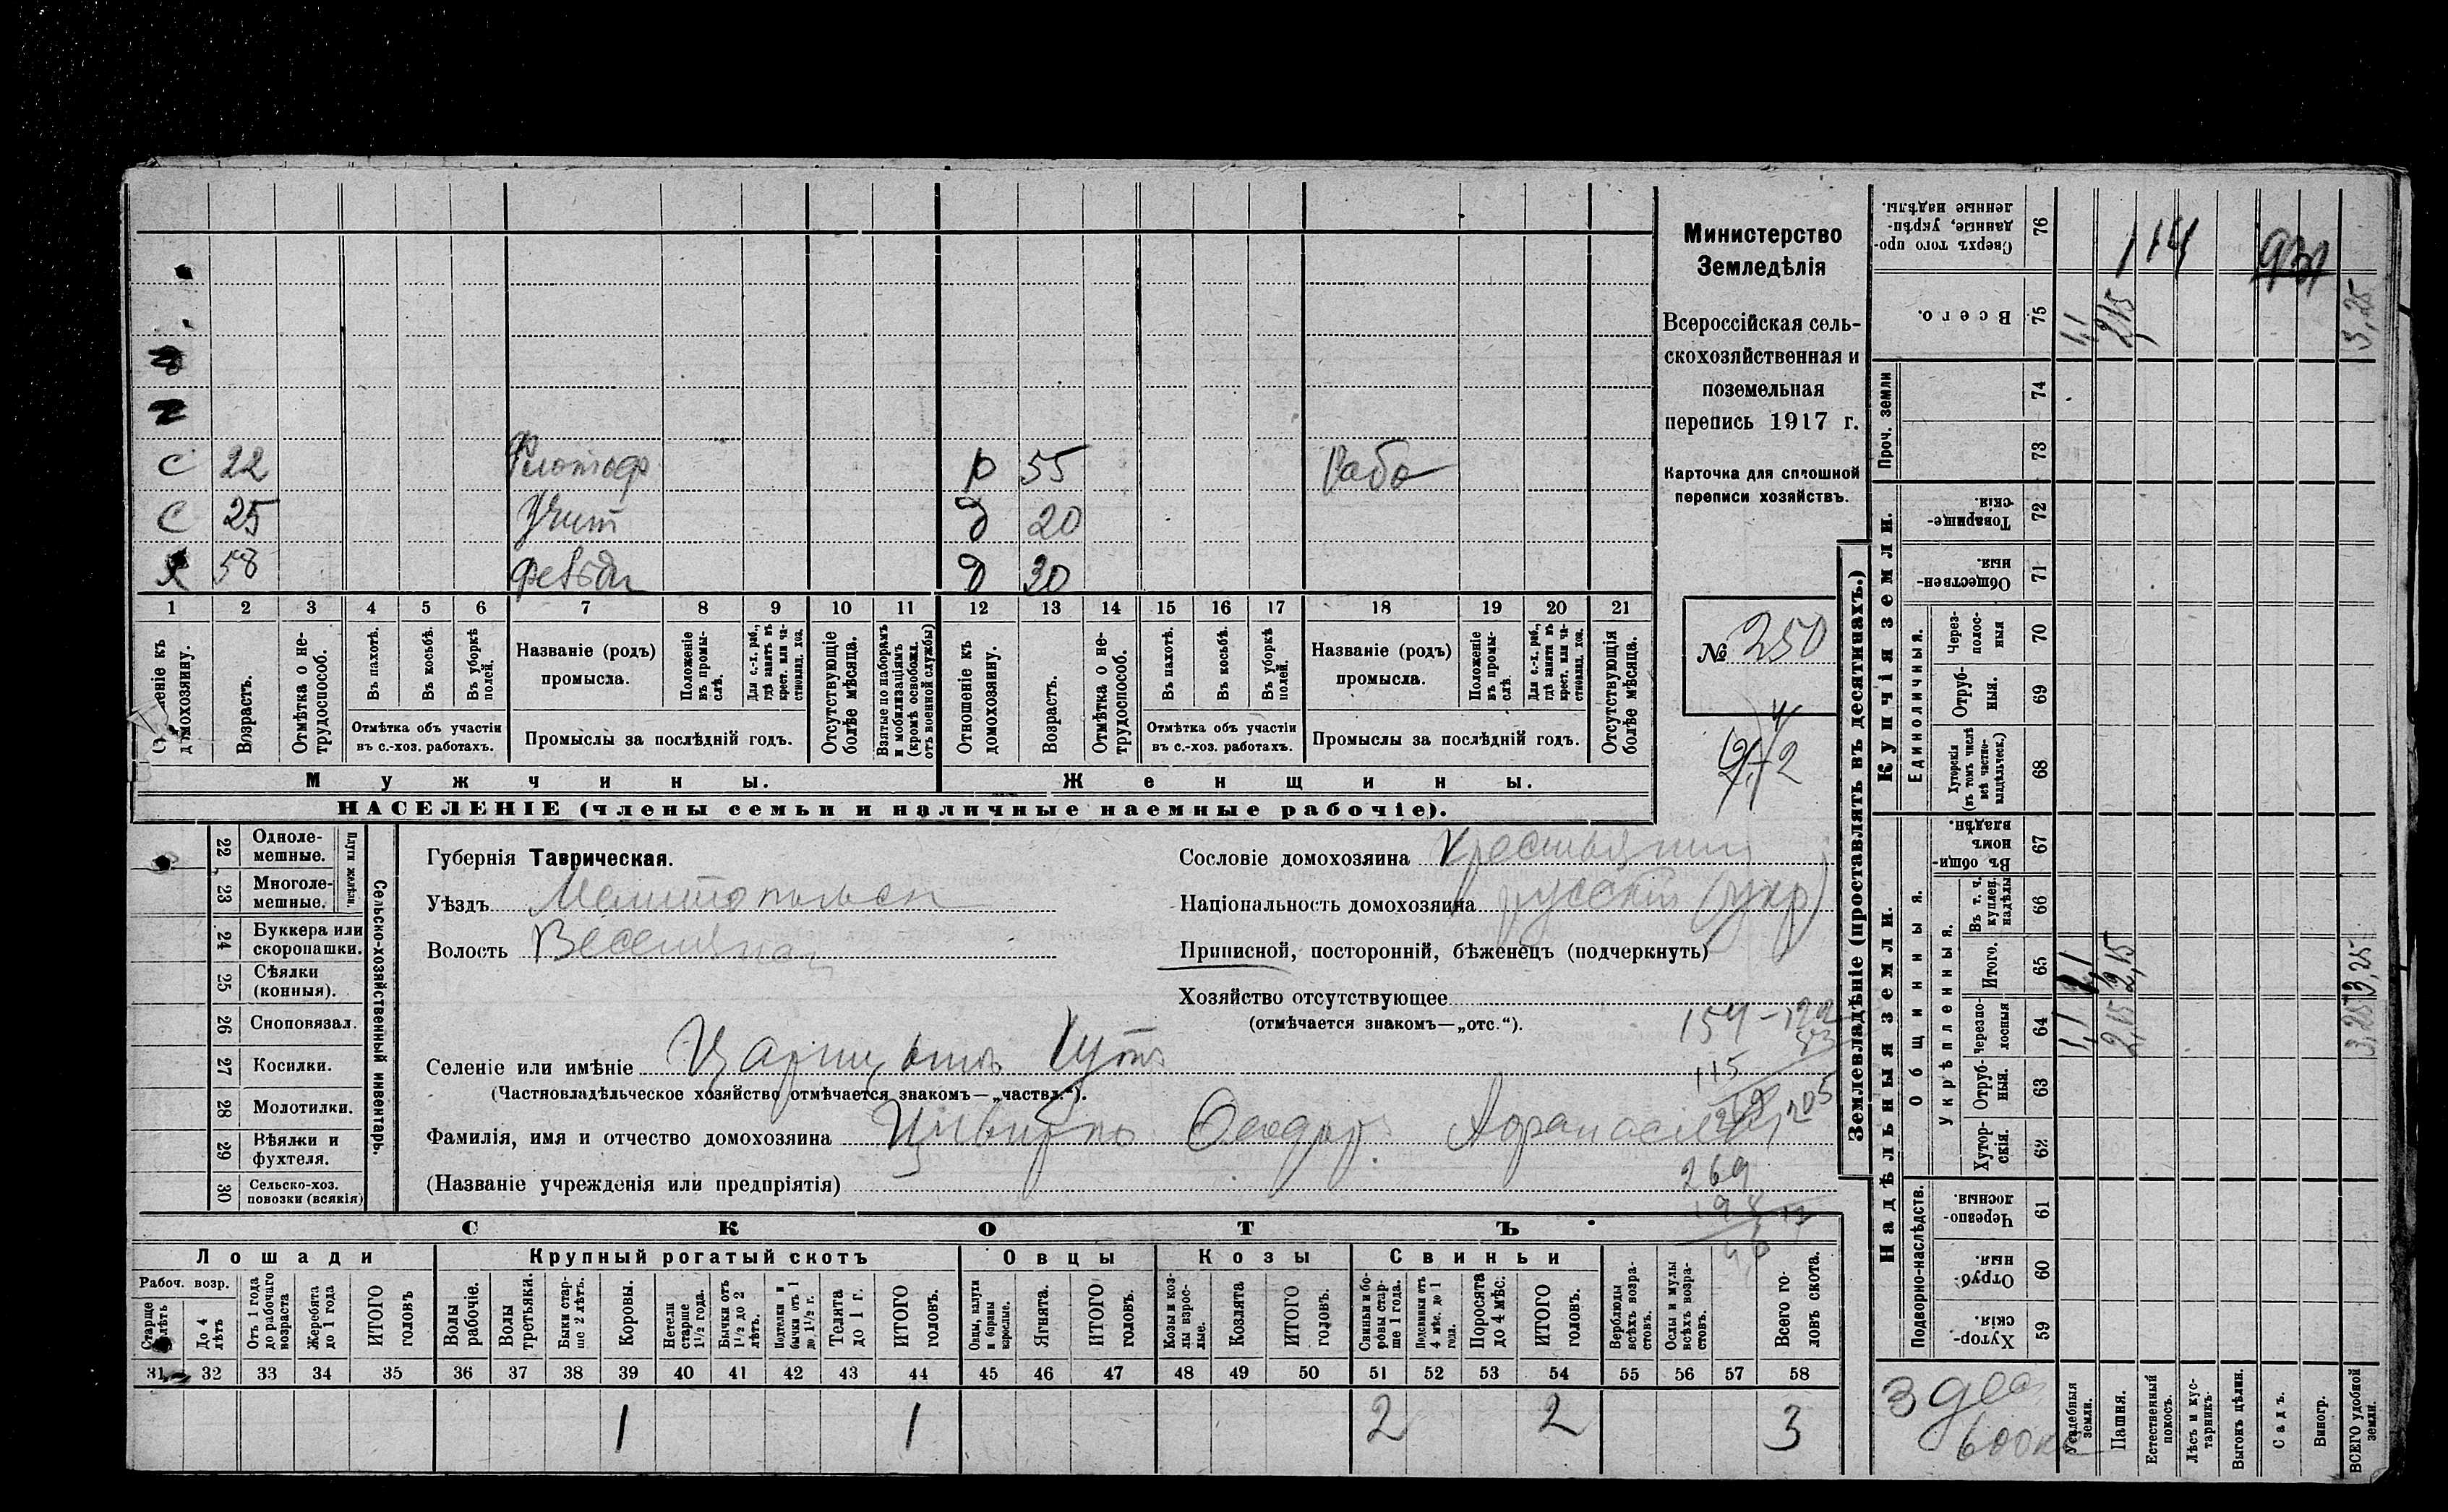 Министерство
Земледѣлія
Всероссійская сель-
скохозяйственная и
поземельная
перепись 1917 г.
Карточка для сплошной
переписи хозяйствъ.
№ 250
С 22
р 55
Рабо
С 25
Учит
д 20
х 58
д 30
1 2 3 4 5 6 7 8 9 10 11 12 13 14 15 16 17 18 19 20 21
домохозяину.
Возрастъ.
Отмѣтка о не-
трудоспособ.
Въ пахотѣ.
Въ косьбѣ.
Въ уборкѣ
полей.
Отмѣтка объ участіи
въ с.-хоз. работахъ.
Названіе (родъ)
промысла.
Положеніе
въ промы-
слѣ.
Для с.-х. раб.,
гдѣ занятъ въ
крест. или ча-
стновлад. хоз.
Промыслы за послѣдній годъ.
Отсутствующіе
болѣе мѣсяца.
Взятые по наборамъ
и мобилизаціямъ
(кромѣ освобожд.
отъ военной службы)
Отношеніе къ
домохозяину.
Возрастъ.
Отмѣтка о не-
трудоспособ.
Въ пахотѣ.
Въ косьбѣ.
Въ уборкѣ
полей.
Отмѣтка объ участіи
въ с.-хоз. работахъ.
Названіе (родъ)
промысла.
Положеніе
въ промы-
слѣ.
Для с.-х. раб.,
гдѣ занята въ
крест. или ча-
стновлад. хоз.
Промыслы за послѣдній годъ.
Отсутствующія
болѣе мѣсяца.
Мужчины.
Женщины.
НАСЕЛЕНІЕ (члены семьи и наличные наемные рабочіе).
Сельско-хозяйственный инвентарь.
Плуги желѣзн.
22 Одноле-
мешные.
23 Многоле-
мешные.
24 Буккера или
скоропашки.
25 Сѣялки
(конныя).
26 Сноповязал.
27 Косилки.
28 Молотилки.
29 Вѣялки и
фухтеля.
30 Сельско-хоз.
повозки (всякія)
Губернія Таврическая.
Уѣздъ Мелитопольск
Волость Веселянская
Сословіе домохозяина Крестьянин
Національность домохозяина русскій (укр)
Приписной, посторонній, бѣженецъ (подчеркнуть)
Хозяйство отсутствующее
(отмѣчается знакомъ—„отс.“).
Селеніе или имѣніе Царицынъ Кутъ
(Частновладѣльческое хозяйство отмѣчается знакомъ—„частвл.“).
Фамилія, имя и отчество домохозяина Цивирко Феодор Афанасіев
(Названіе учрежденія или предпріятія)
115
269
СКОТЪ
Лошади
Крупный рогатый скотъ
Овцы
Козы
Свиньи
Рабоч. возр.
Старше
лѣтъ
До 4
лѣтъ
Отъ 1 года
до рабочаго
возраста
Жеребята
до 1 года
ИТОГО
головъ
Волы
рабочіе.
Волы
третьяки.
Быки стар-
ше 2 лѣтъ.
Коровы.
Нетели
старше
1½ года.
Бычки отъ
1½ до 2
лѣтъ.
Подтелки и
бычки отъ 1
до 1½ г.
Телята
до 1 г.
ИТОГО
головъ.
Овцы, валухи
и бараны
взрослые.
Ягнята.
ИТОГО
головъ.
Козы и коз-
лы взрос-
лые.
Козлята
ИТОГО
головъ.
Свиньи и бо-
ровы стар-
ше 1 года.
Подсвинки отъ
4 мѣс. до 1
года.
Поросята
до 4 мѣс.
ИТОГО
головъ.
Верблюды
всѣхъ возра-
стовъ.
Ослы и мулы
всѣхъ возра-
стовъ.
Всего го-
ловъ скота.
31 32 33 34 35 36 37 38 39 40 41 42 43 44 45 46 47 48 49 50 51 52 53 54 55 56 57 58
1 1 2 2 3
Землевладѣніе (проставлять въ десятинахъ.)
Купчія земли.
Надѣльныя земли.
Сверхъ того про-
данные, укрѣп-
ленные надѣлы.
76
114
931
Всего.
75
1,1
2,15
3,25
Проч. земли
74
73
Товарище-
скія.
72
Обществен-
ныя.
71
Единоличныя.
Через-
полос-
ныя
70
Отруб-
ныя.
69
Хуторскія
(въ томъ числѣ
всѣ частно-
владѣльческ.)
68
Общинныя.
Въ общин-
номъ
владѣн.
67
Укрѣпленныя.
Въ т. ч.
куплен.
надѣлы
66
Итого.
65
1,1
2,15
3,25
Черезпо-
лосныя
64
1,1
2,15
3,25
Отруб-
ныя.
63
Хутор-
скія.
62
Подворно-наслѣдств.
Черезпо-
лосныя.
61
Отруб-
ныя.
60
Хутор-
скія.
59
3 дес
600
Усадебныя
земли.
Пашня.
Естественный
покосъ.
Лѣсъ и кус-
тарникъ
Выгонъ цѣлин.
Садъ.
Виногр.
ВСЕГО удобной
земли.